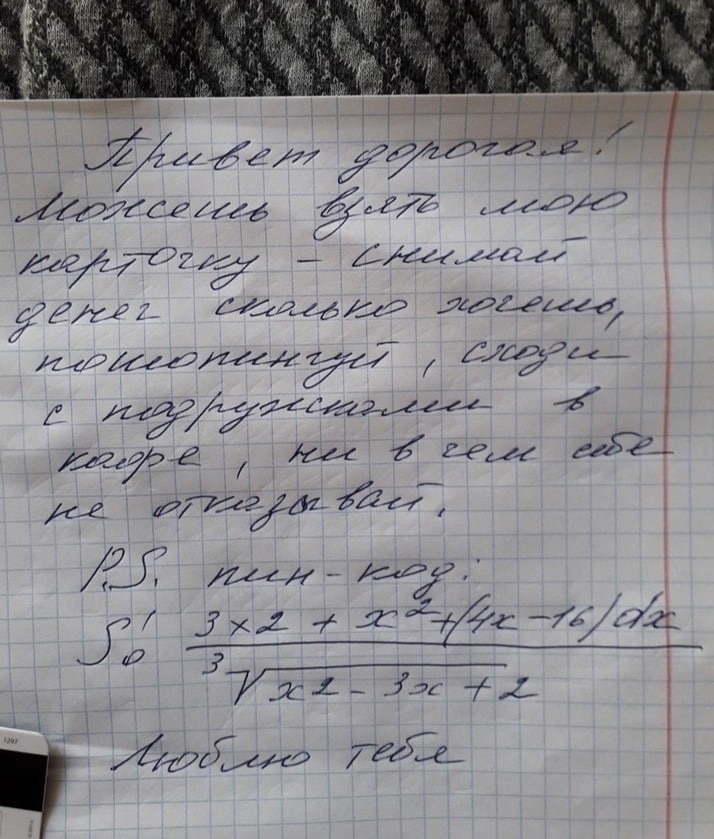 Привет дорогая!
Можешь взять мою
карточку – снимай
денег сколько хочешь,
пошопингуй, сходи
с подружками в
кафе, ни в чем себе
не отказывай.
P.S. пин-код:
∫₀¹ 3x2 + x² + (4x – 16) dx
∛x2 – 3x + 2
Люблю тебя
1297